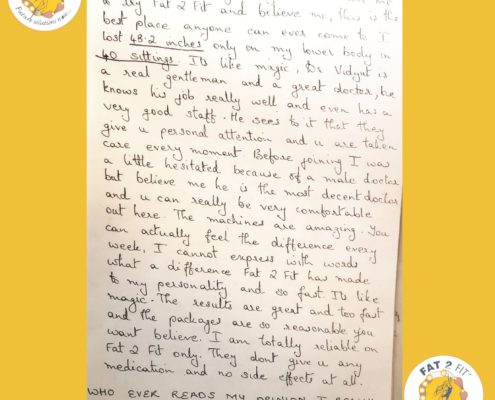 to try Fat 2 Fit and believe me, this is the
best place anyone can ever come to I
lost 48.2 inches only on my lower body in
40 sittings. Its like magic, Dr Vidyut is
a real gentleman and a great doctor, he
knows his job really well and even has a
very good staff. He sees to it that they
give u personal attention and u are taken
care every moment. Before joining I was
a little hesitated because of a male doctor
but believe me he is the most decent doctor
and u can really be very comfortable
out here. The machines are amazing. You
can actually feel the difference every
week, I cannot express with words
what a difference Fat 2 Fit has made
to my personality and so fast. Its like
magic. The results are great and too fast
and the packages are so reasonable you
want believe. I am totally reliable on
Fat 2 Fit only. They dont give u any
medication and no side effects at all.
WHO EVER READS MY OPINION I
FAT 2 FIT